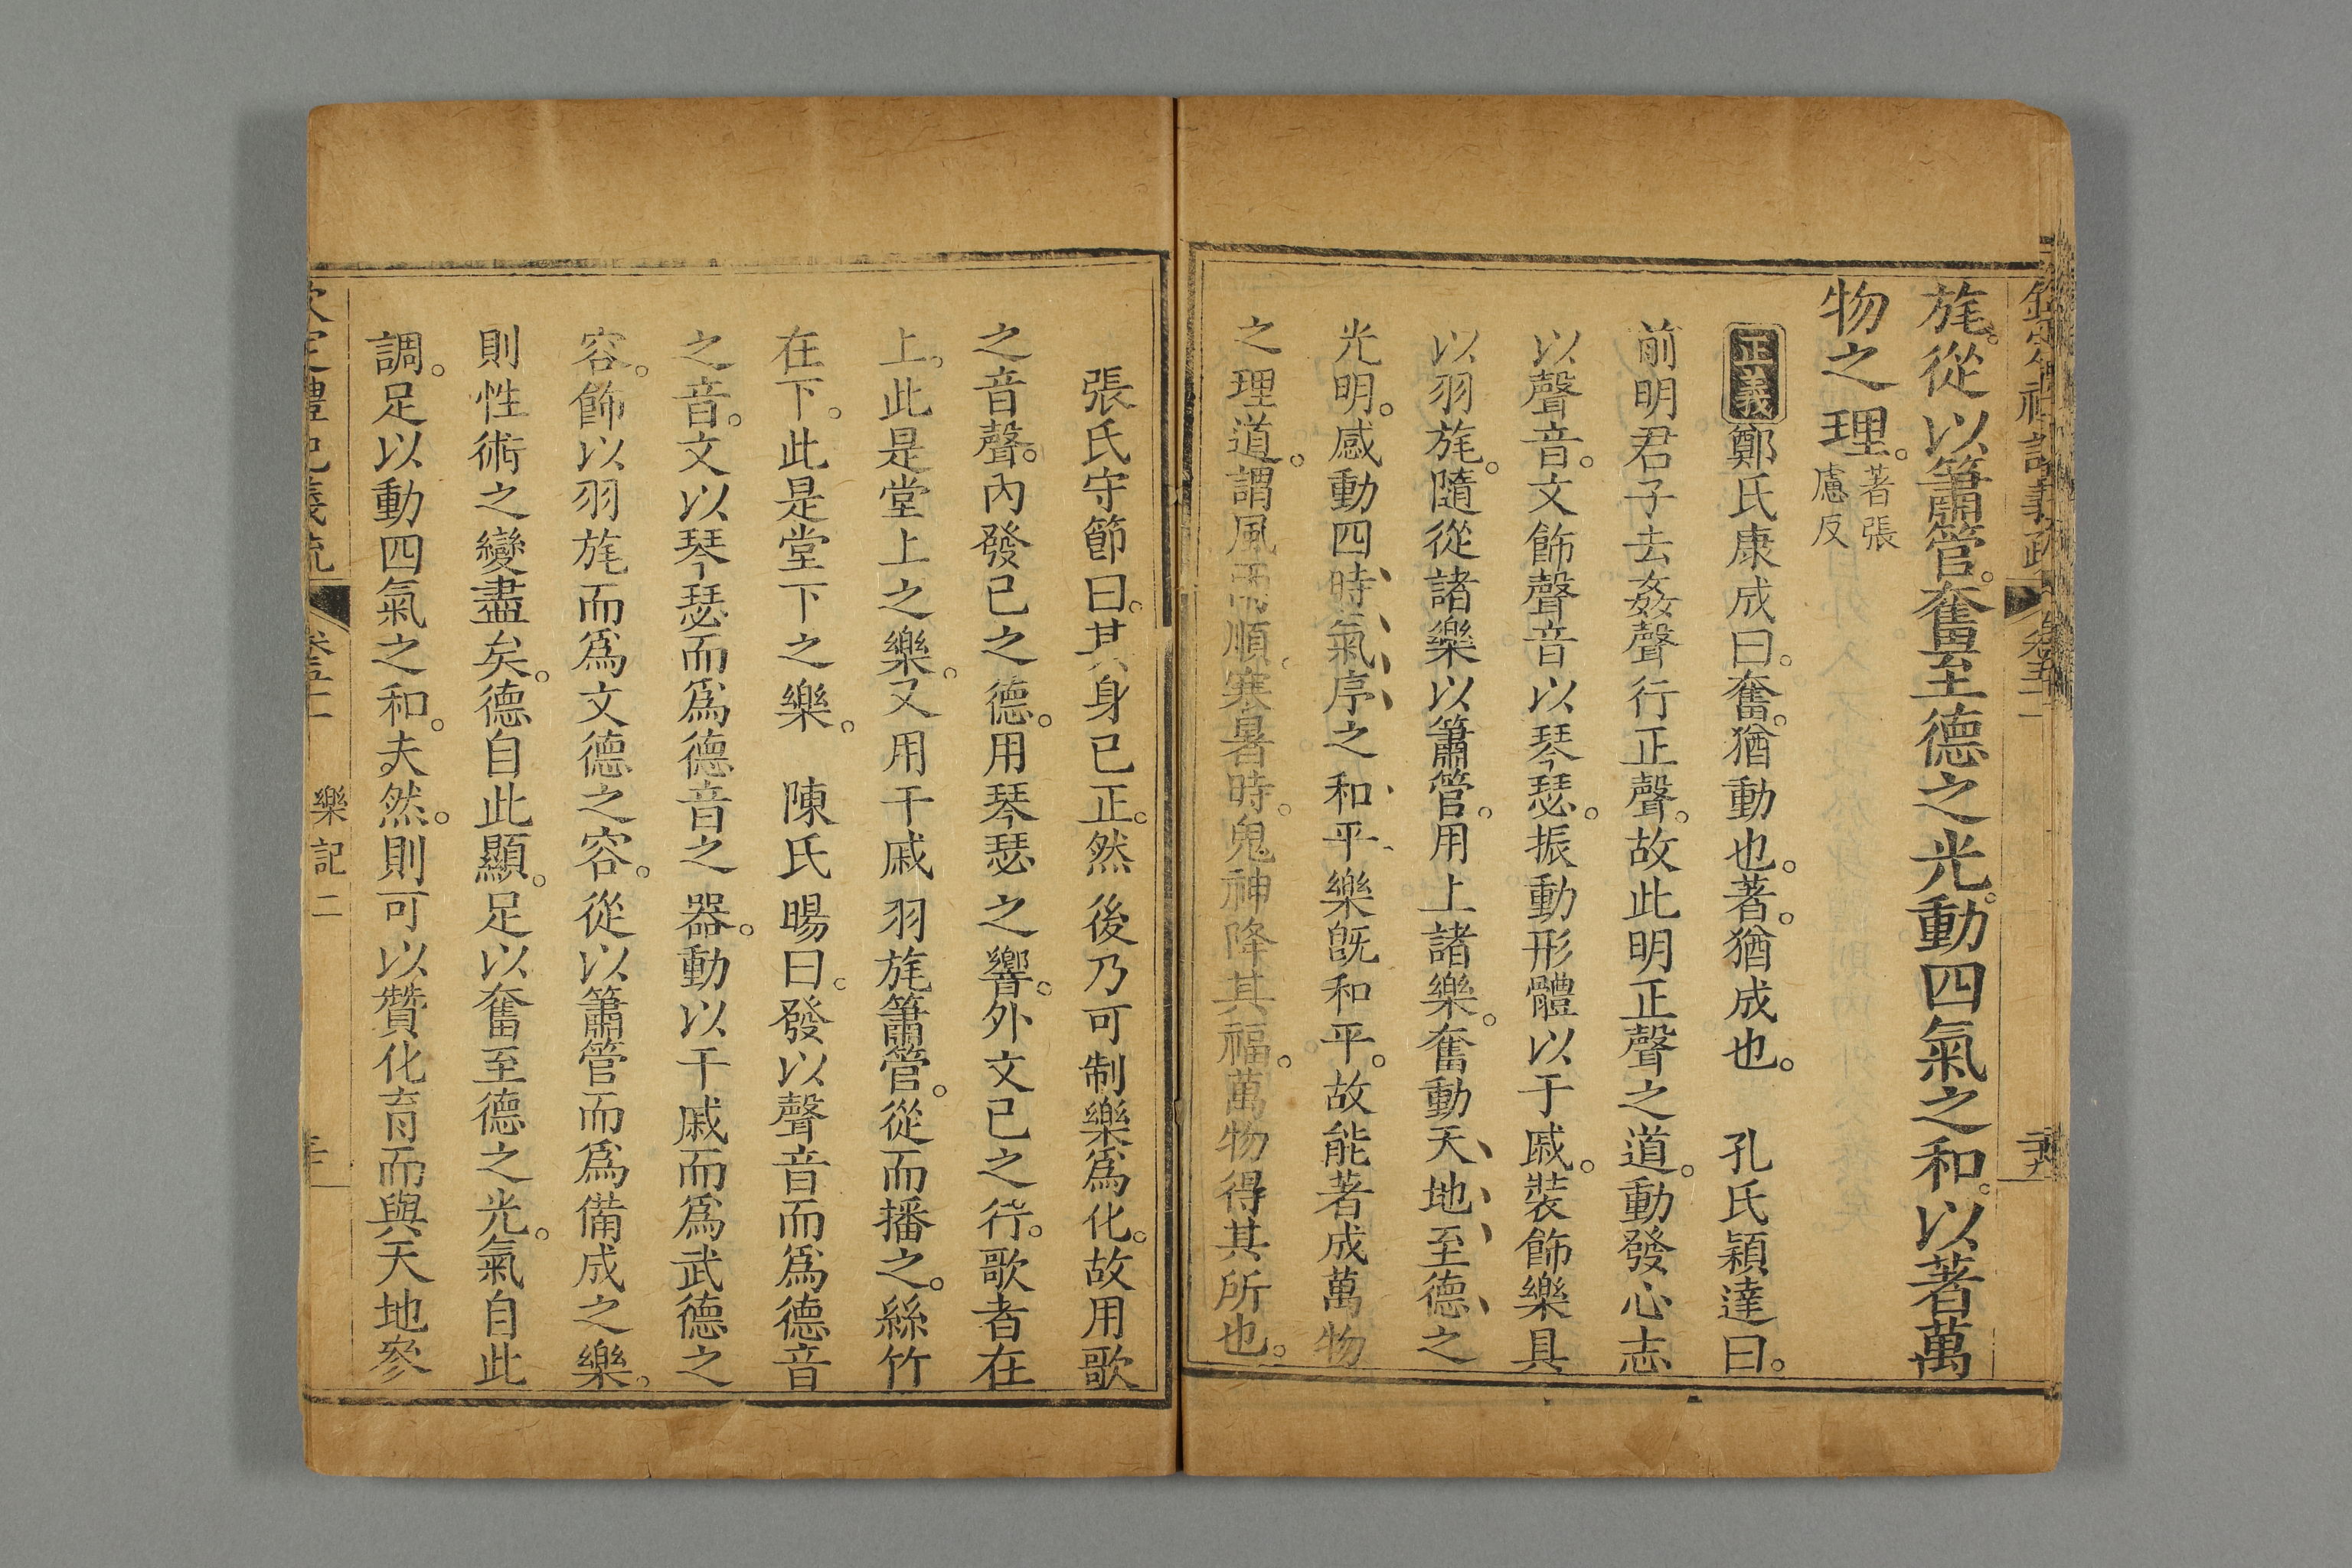 旄。從以簫管。奮至德之光。動四氣之和。以著萬
物之理。著張
慮反
正義鄭氏康成曰。奮。猶動也。著。猶成也。　孔氏穎達曰。
前明君子去姦聲行正聲。故此明正聲之道。動發心志
以聲音。文飾聲音以琴瑟。振動形體以于戚。裝飾樂具
以羽旄。隨從諸樂以簫管。用上諸樂。奮動天地至德之
光明。感動四時氣序之和平樂旣和平。故能著成萬物
之理道。謂風雨順。寒暑時。鬼神降其福。萬物得其所也。
張氏守節曰。其身已正。然後乃可制樂爲化。故用歌
之音聲。內發已之德。用琴瑟之響。外文已之行。歌者在
上。此是堂上之樂。又用干戚羽旄簫管。從而播之。絲竹
在下。此是堂下之樂。　陳氏暘曰。發以聲音而爲德音
之音。文以琴瑟而爲德音之器。動以干戚而爲武德之
容。飾以羽旄而爲文德之容。從以簫管而爲備成之樂。
則性術之變盡矣。德自此顯。足以奮至德之光。氣自此
調。足以動四氣之和。夫然。則可以贊化育而與天地參
樂記二